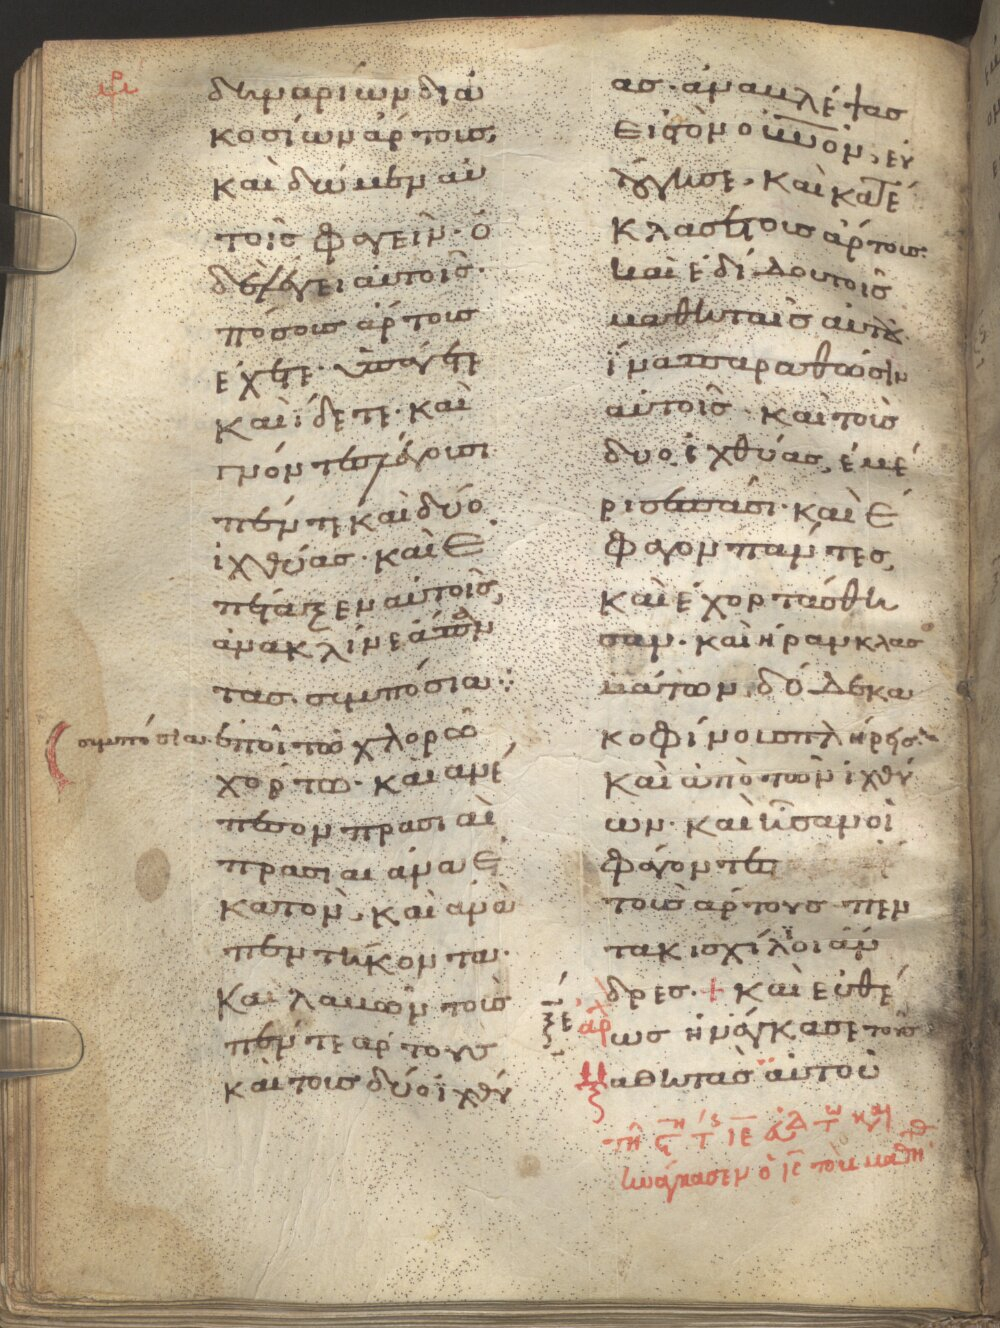 δηναρίων δια
κοσίων ἄρτους,
καὶ δώμεν αὐ
τοῖς φαγεῖν· ὁ
δὲ λέγει αὐτοῖς·
πόσους ἄρτους
ἔχετε· ὑπάγετε
καὶ ἴδετε· καὶ
γνόντες λέγουσι
πέντε καὶ δύο
ἰχθύας· καὶ ἐ
πέταξεν αὐτοῖς,
ἀνακλῖνε ἁπὸν
τας· συμπόσια·:
συμπόσια· ἐπὶ τῶ χλορῶ
χόρτω· καὶ ἀνέ
πεσον πρασιαὶ
πρασιαι ἀνα ἐ
κατὸν, καὶ ἀνὰ
πεντήκοντα·
Και λαβὼν τοὺς
πέντε ἄρτους
καὶ τοὺς δύο ἰχθύ
ας· ἀναβλέψας
εἰς τὸν οὐνόν, εὐ
λόγησε, καὶ κατέ
κλασε τοὺς ἄρτους·
καὶ ἐδίδου τοῖς
μαθηταῖς αὐτοῦ
ἵνα παραθῶσιν
αὐτοῖς· καὶ τοὺς
δυο ἰχθύας, ἐμέ
ρισε πᾶσι· καὶ ἔ
φαγον πάντες,
καὶ ἐχορτάσθη
σαν· καὶ ἦραν κλασ
μάτων, δώδεκα
κοφίνους πλήρεις·
καὶ ἀπὸ τῶν ἰχθύ
ων· καὶ ἦσαν οἱ
φαγόντες
τοὺς ἄρτους πεν
τακισχίλιοι ἄν
δρες· + καὶ εὐθέ
ξε αρχ ως ἠνάγκασε τοὺς
μαθητὰς αὐτοῦ
ἠνάγκασεν ὁ ις τοὺς μαθη